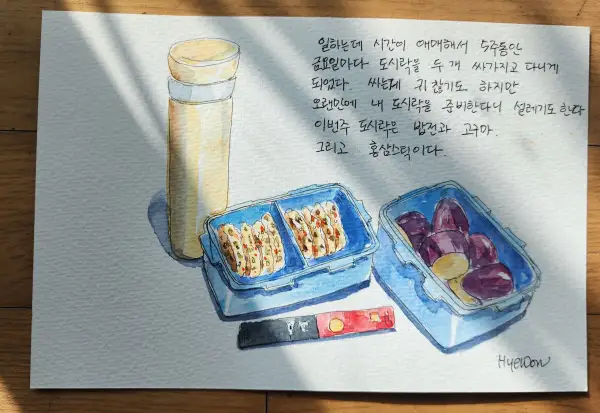 일하는데 시간이 애매해서 5주동안
금요일마다 도시락을 두 개 싸가지고 다니게
되었다. 싸는데 귀찮기도 하지만
오랜만에 내 도시락을 준비한다니 설레기도 한다
이번주 도시락은 밥전과 고구마.
그리고 홍삼스틱이다.
HyeWon